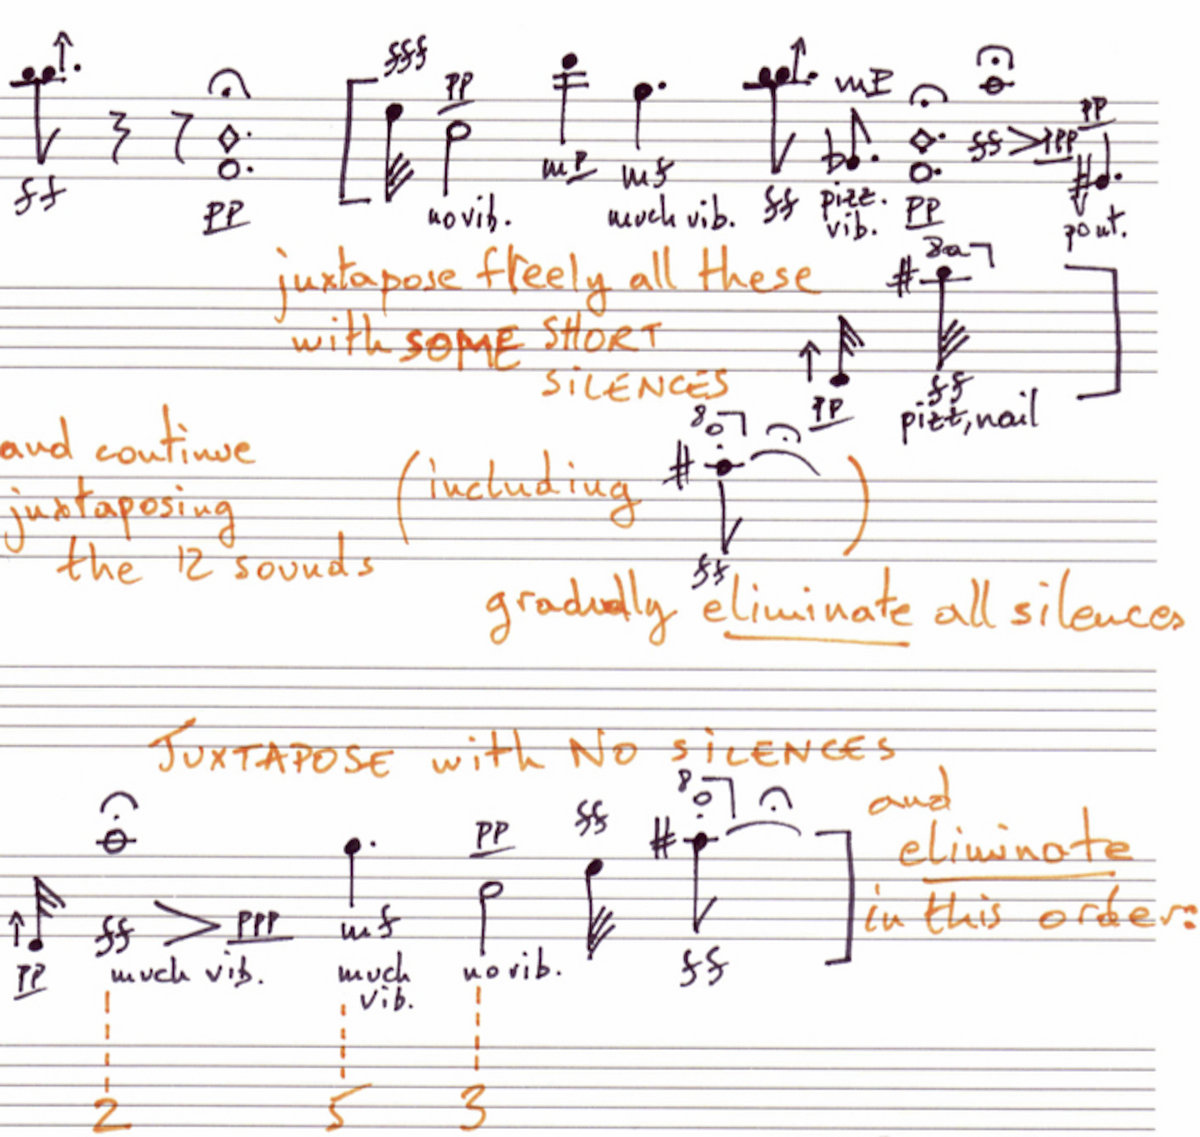 fff
pp
mp
mf
mp
ff > ppp
pp
ff
pp
no vib.
much vib.
ff
pizz.
vib.
pp
pont.
juxtapose freely all these
with SOME SHORT
SILENCES
8a
pp
ff
pizz, nail
and continue
juxtaposing
the 12 sounds
(including
8
)
ff
gradually eliminate all silences
JUXTAPOSE with NO SILENCES
8
and
eliminate
in this order:
pp
ff
pp
ff > ppp
much vib.
mf
much
vib.
no vib.
ff
2
5
3